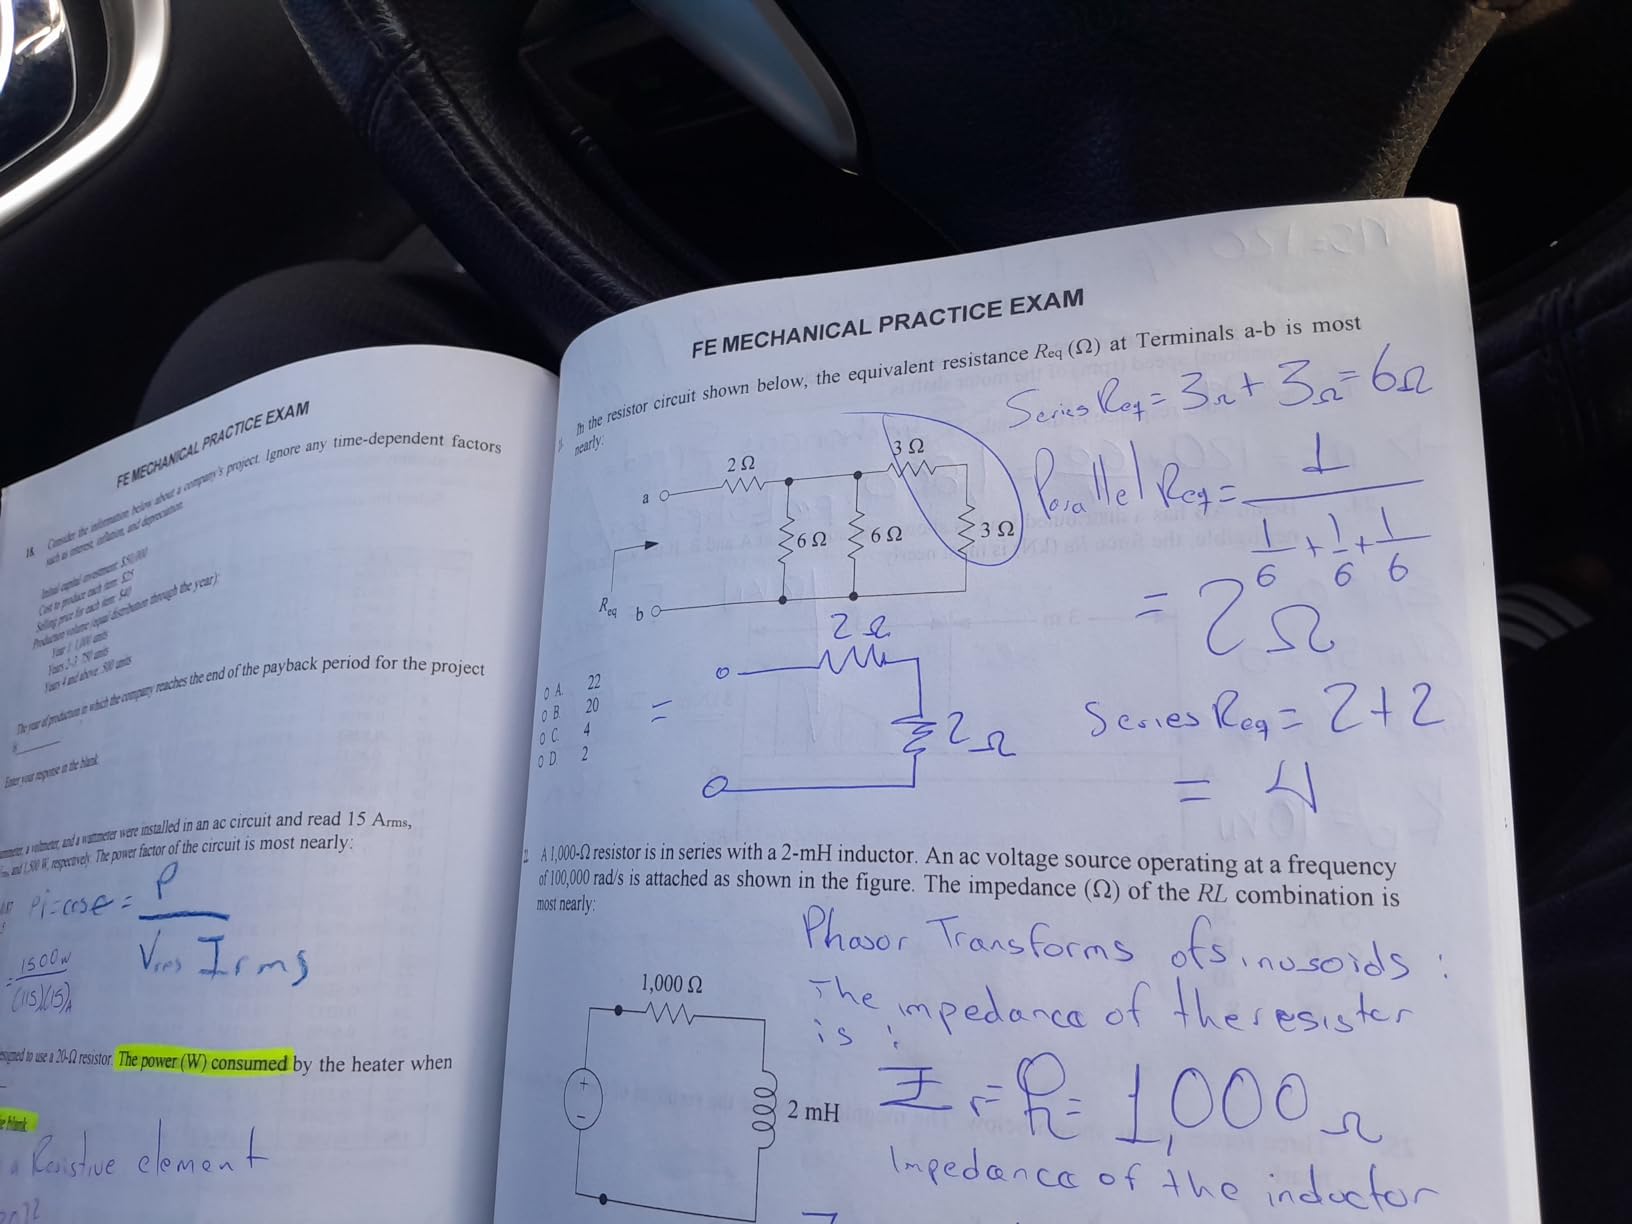 FE MECHANICAL PRACTICE EXAM
18. Consider the information below about a company's project. Ignore any time-dependent factors
such as interest, inflation, and depreciation.
Initial capital investment: $50,000
Cost to produce each item: $25
Selling price for each item: $40
Production volume (equal distribution throughout the year):
Year 1: 1,000 units
Years 2-3: 750 units
Years 4 and above: 500 units
The year of production in which the company reaches the end of the payback period for the project
is
Enter your response in the blank.
a voltmeter, and a wattmeter were installed in an ac circuit and read 15 Arms,
and 1,500 W, respectively. The power factor of the circuit is most nearly:
0.87
= P
Vrms Irms
= 1500w
(115)(15)A
designed to use a 20-Ω resistor. The power (W) consumed by the heater when
blank.
a Resistive element
FE MECHANICAL PRACTICE EXAM
In the resistor circuit shown below, the equivalent resistance Req (Ω) at Terminals a-b is most
nearly:
Series Req = 3Ω + 3Ω = 6Ω
Parallel Req = 1
1/6 + 1/6 + 1/6
= 2Ω
2 Ω
3 Ω
a
6 Ω
6 Ω
3 Ω
Req
b
O A. 22
O B. 20
O C. 4
O D. 2
=
2Ω
2Ω
Series Req = 2+2
= 4
A 1,000-Ω resistor is in series with a 2-mH inductor. An ac voltage source operating at a frequency
of 100,000 rad/s is attached as shown in the figure. The impedance (Ω) of the RL combination is
most nearly:
Phasor Transforms of sinusoids :
The impedance of the resister
is :
Zr = R = 1,000Ω
Impedance of the inductor
1,000 Ω
+
−
2 mH